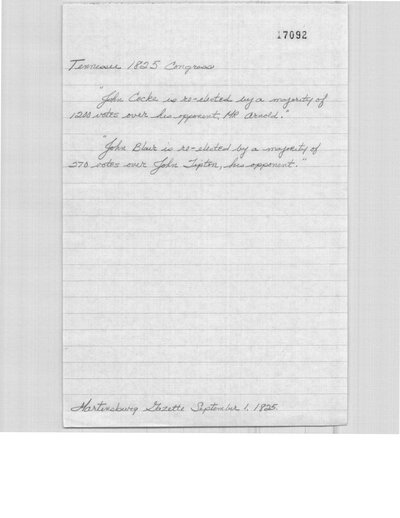 17092
Tennessee 1825 Congress
"John Cocke is re-elected by a majority of
1200 votes over his opponent, MR Arnold."
"John Blair is re-elected by a majority of
270 votes over John Tipton, his opponent."
Martinsburg Gazette September 1, 1825.